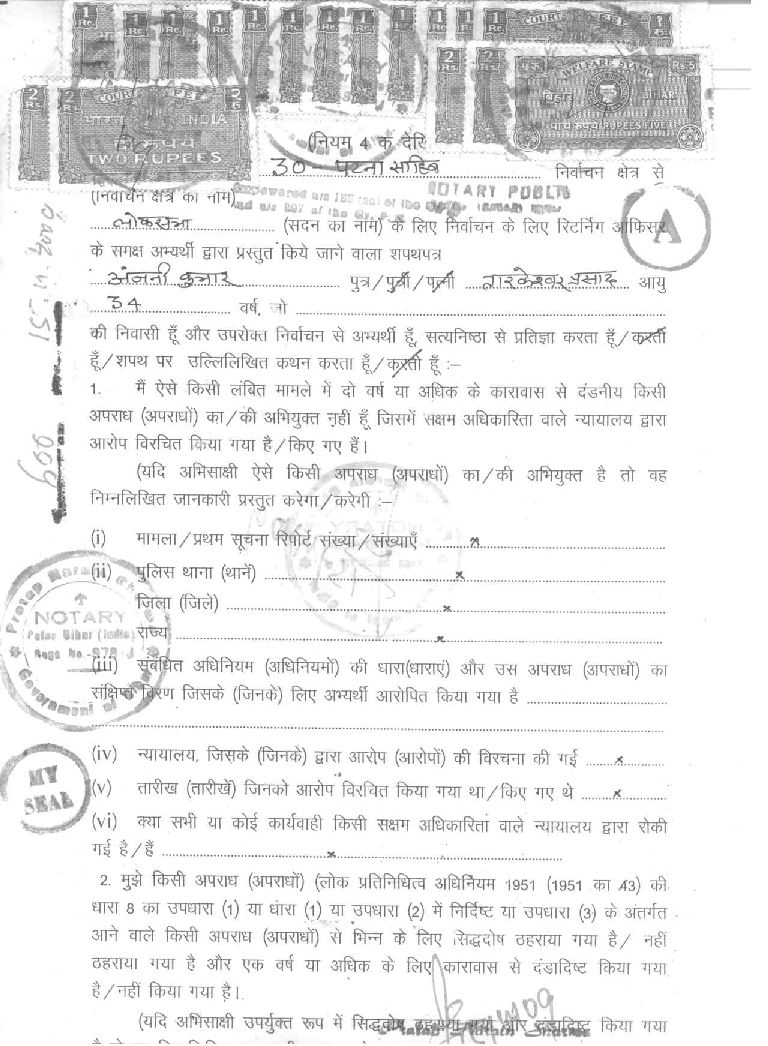 1 Re. 1 Re. 1 Re. 1 Re. 1 Re. 1 Re. 1 Re. 1 Re. COURT FEE
2 Rs. 2 Rs. WELFARE STAMP Rs 5
बिहार BIHAR
पाँच रूपये RUPEES FIVE
2 Rs. 2 Rs. COURT FEE
भारत INDIA
दो रूपये
TWO RUPEES
(नियम 4 क देखि
30 पटना साहिब निर्वाचन क्षेत्र से
(निर्वाचन क्षेत्र का नाम)
NOTARY PUBLIC
लोकसभा (सदन का नाम) के लिए निर्वाचन के लिए रिटर्निंग ऑफिसर
A
के समक्ष अभ्यर्थी द्वारा प्रस्तुत किये जाने वाला शपथपत्र
अंजनी कुमार पुत्र/पुत्री/पत्नी तारकेश्वर प्रसाद आयु
34 वर्ष, जो
की निवासी हूँ और उपरोक्त निर्वाचन से अभ्यर्थी हूँ, सत्यनिष्ठा से प्रतिज्ञा करता हूँ/करती
हूँ/शपथ पर उल्लिलिखित कथन करता हूँ/करती हूँ :–
1. मैं ऐसे किसी लंबित मामले में दो वर्ष या अधिक के कारावास से दंडनीय किसी
अपराध (अपराधों) का/की अभियुक्त नही हूँ जिसमें सक्षम अधिकारिता वाले न्यायालय द्वारा
आरोप विरचित किया गया है/किए गए हैं।
(यदि अभिसाक्षी ऐसे किसी अपराध (अपराधों) का/की अभियुक्त है तो वह
निम्नलिखित जानकारी प्रस्तुत करेगा/करेगी :–
(i) मामला/प्रथम सूचना रिपोर्ट संख्या/संख्याएँ x
(ii) पुलिस थाना (थानें) x
जिला (जिले) x
राज्य x
NOTARY
Patna Bihar (India)
Regd No.-
Government of
(iii) संबंधित अधिनियम (अधिनियमों) की धारा(धाराएं) और उस अपराध (अपराधों) का
संक्षिप्त विरण जिसके (जिनके) लिए अभ्यर्थी आरोपित किया गया है
(iv) न्यायालय, जिसके (जिनके) द्वारा आरोप (आरोपों) की विरचना की गई x
MY
SEAL
(v) तारीख (तारीखें) जिनको आरोप विरचित किया गया था/किए गए थे x
(vi) क्या सभी या कोई कार्यवाही किसी सक्षम अधिकारिता वाले न्यायालय द्वारा रोकी
गई है/हैं x
2. मुझे किसी अपराध (अपराधों) (लोक प्रतिनिधित्व अधिनियम 1951 (1951 का 43) की
धारा 8 का उपधारा (1) या धारा (1) या उपधारा (2) में निर्दिष्ट या उपधारा (3) के अंतर्गत
आने वाले किसी अपराध (अपराधों) से भिन्न के लिए सिद्धदोष ठहराया गया है/ नहीं
ठहराया गया है और एक वर्ष या अधिक के लिए कारावास से दंडादिष्ट किया गया
है/नहीं किया गया है।
(यदि अभिसाक्षी उपर्युक्त रूप में सिद्धदोष ठहराया गया और दंडादिष्ट किया गया